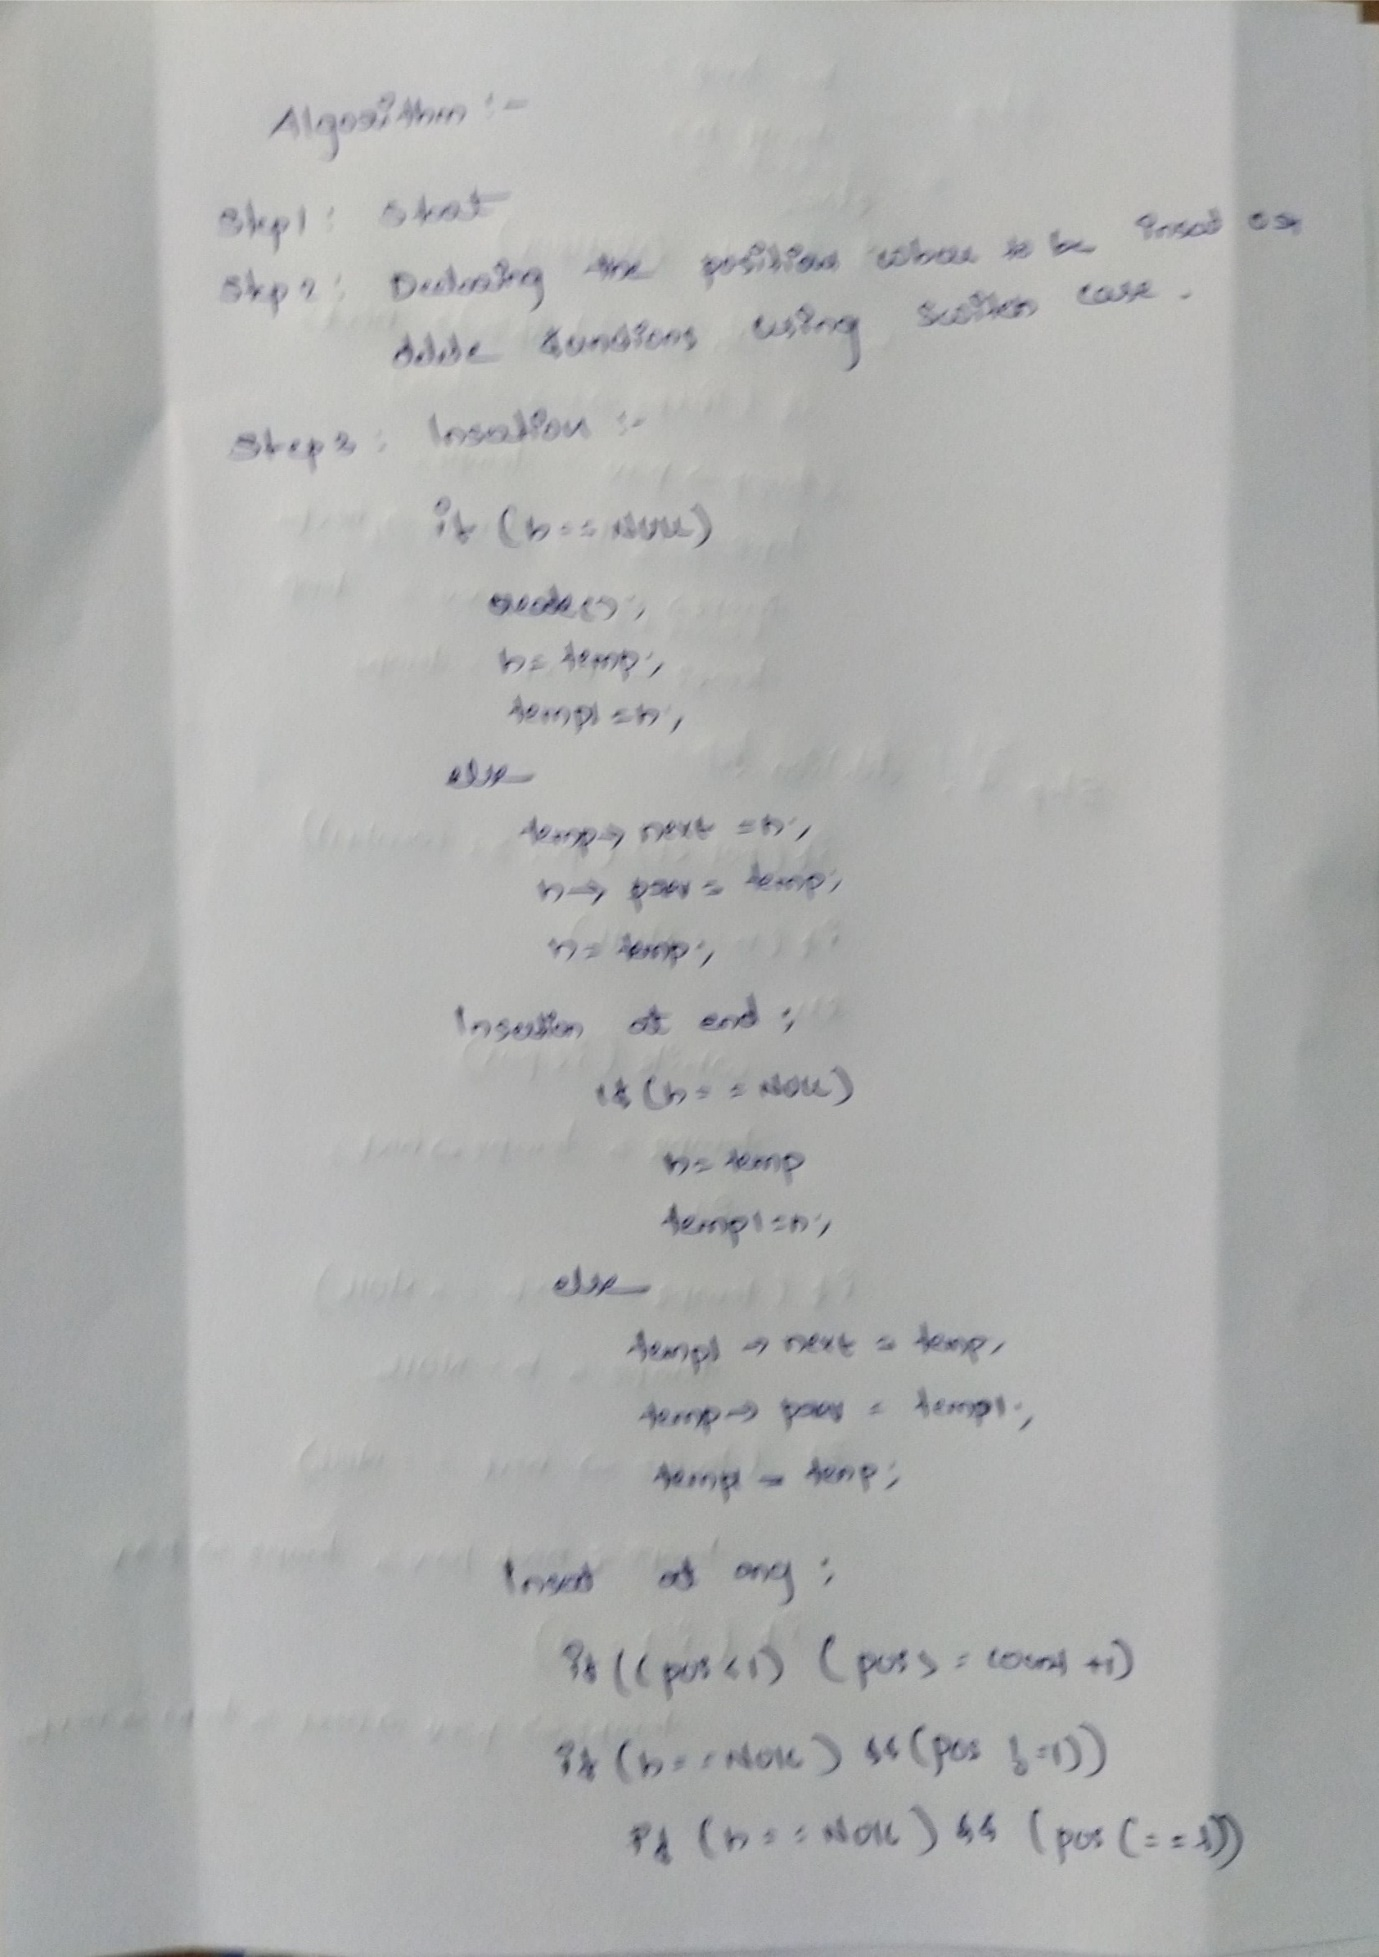 Algorithm :-
Step1 : Start
Step 2 : Declaring the position where to be Insert or
delete functions using switch case.
Step 3 : Insertion :-
if (h == NULL)
create();
h = temp;
temp1 = h;
else
temp → next = h;
h → prev = temp;
h = temp;
Insertion at end ;
if (h == NULL)
h = temp
temp1 = h;
else
temp1 → next = temp;
temp → prev = temp1;
temp1 = temp;
Insert at any ;
If ((pos < 1) (pos > = count +1)
If (h == NULL) && (pos != 1))
If (h == NULL) && (pos (== 1))